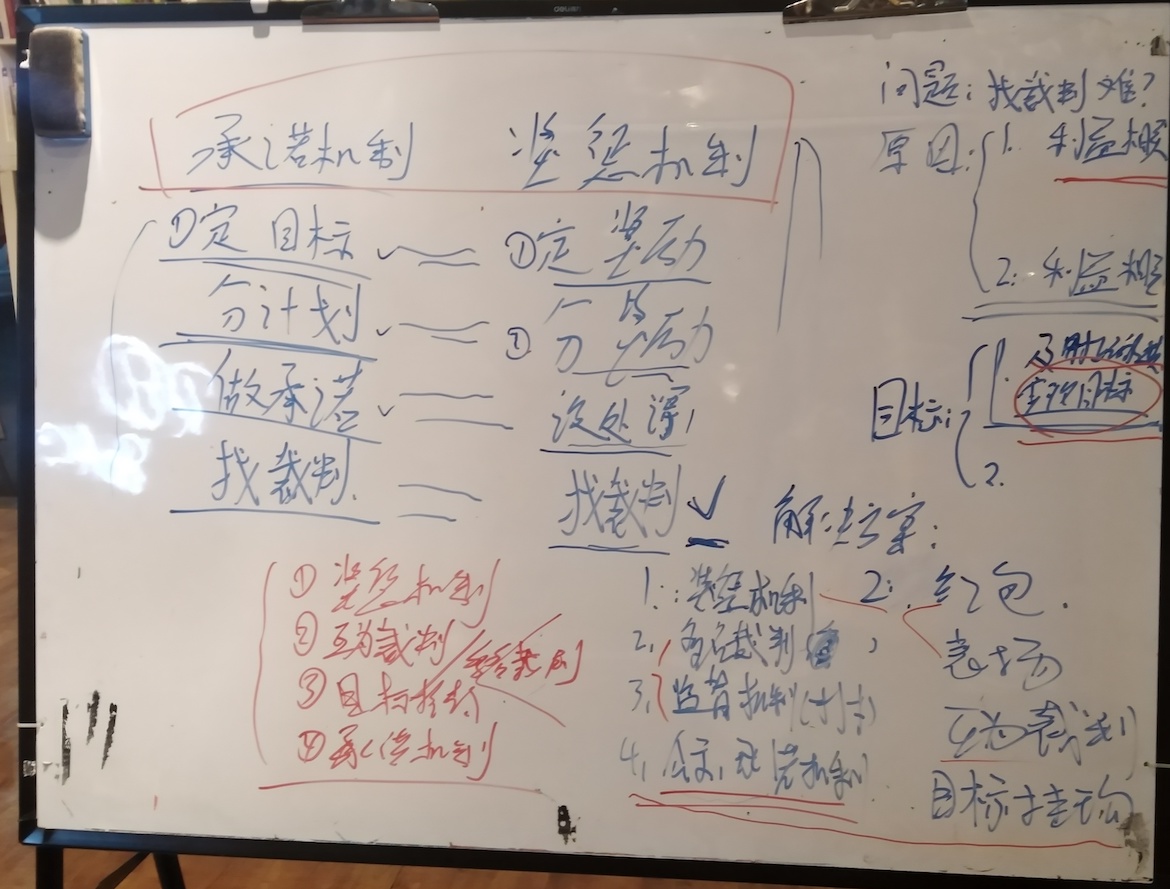 deli
承诺机制 奖惩机制
①定目标 ✓ ①定奖励
分计划 ✓ ① 分奖励
做承诺 ✓ 设处罚
找裁判 找裁判 ✓
问题:找裁判难?
原因:
1. 利益相
2. 利益相
目标:
1. 及时
实现目标
2.
解决方案:
① 奖惩机制
② 互为裁判
③ 目标挂钩
④ 承诺机制
1. 奖惩机制
2. 多名裁判
3. 监督机制
4. 公众承诺机制
2. 红包
离场
互为裁判
目标挂钩